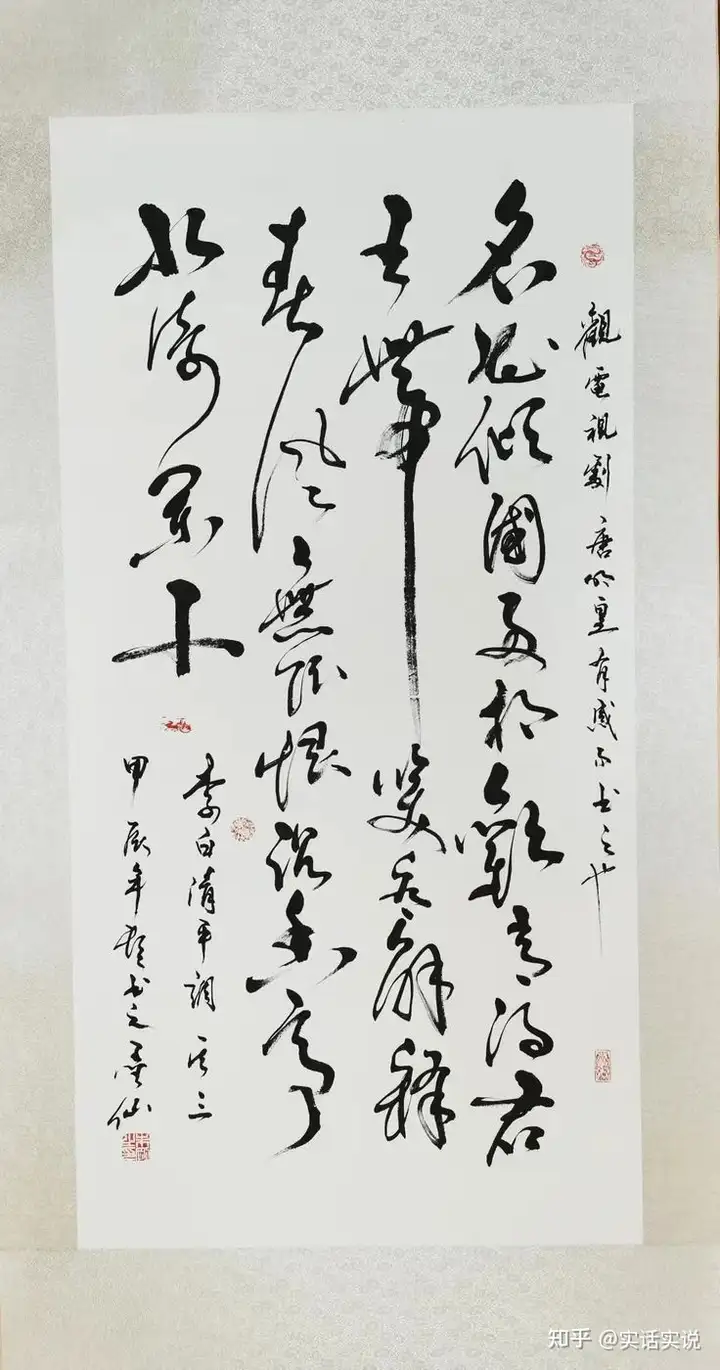 觀電視劇唐明皇有感而书之也
名花倾國兩相歡常得君
王帶笑看解释
春風無限恨沉香亭
北倚闌干
李白清平調其三
甲辰年书之墨仙
知乎 @实话实说